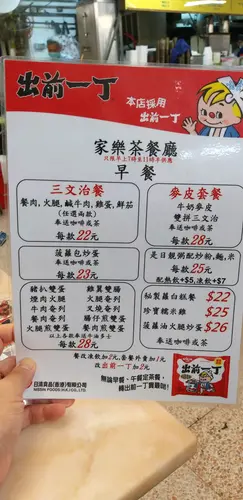 出前一丁
本店採用
出前一丁
家樂茶餐廳
只限早上7時至11時半供應
早餐
三文治餐
餐肉,火腿,鹹牛肉,雞蛋,鮮茄
(任選兩款)
奉送咖啡或茶
每款22元
菠蘿包炒蛋
奉送咖啡或茶
每款23元
麥皮套餐
牛奶麥皮
雙拼三文治
奉送咖啡或茶
每款28元
是日靚粥配炒粉,麵,米
每款25元
配熱飲+$5,凍飲+$7
豬扒雙蛋
煙肉火腿
牛肉奄列
餐肉奄列
火腿煎雙蛋
雞翼雙腸
火腿奄列
叉燒奄列
腸仔煎雙蛋
餐肉煎雙蛋
以上各款奉送牛油多士
奉送咖啡或茶
每款28元
秘製蘿白糕餐 $22
珍寶糯米雞 $25
菠蘿油火腿炒蛋 $26
奉送咖啡或茶
餐改凍飲加2元,套餐外賣加1元
改出前一丁加2元
日清食品(香港)有限公司
NISSIN FOODS (H.K.) CO., LTD.
無論早餐、午餐定茶餐,
轉出前一丁實最啱!
出前一丁